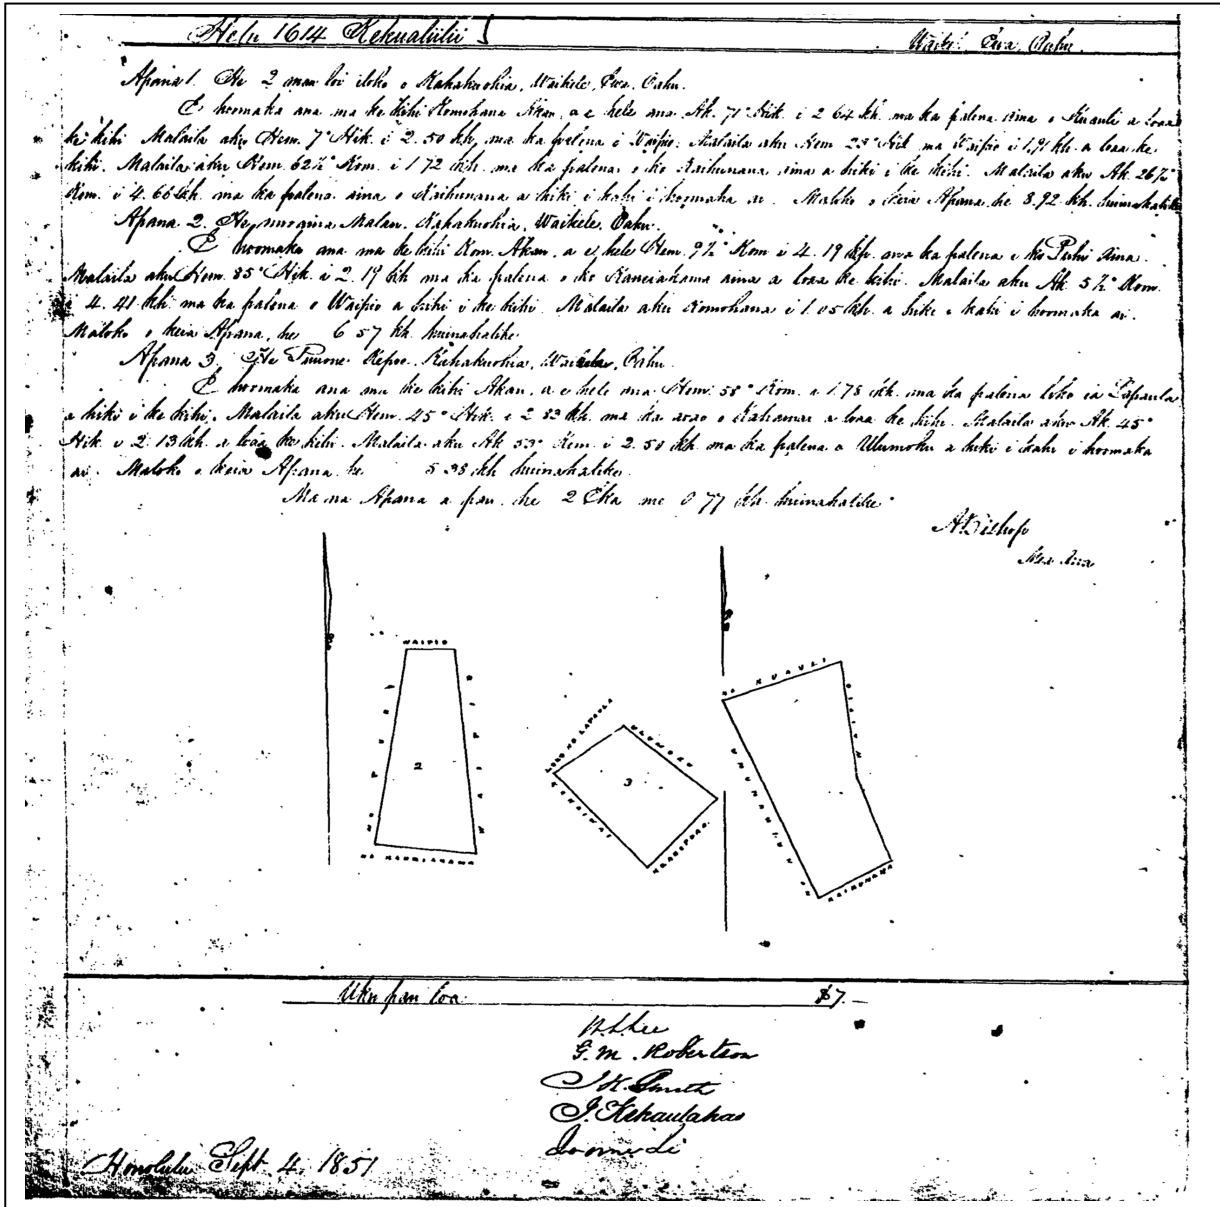 Helu 1614 Kekualiilii
Waikele Ewa Oahu.
Apana 1. He 2 mau loi iloko o Kahakuohia, Waikele, Ewa, Oahu.
E hoomaka ana ma ke kihi Komohana Akau, a e hele ana Ak. 71° Hik. i 2 64 kh. ma ka palena aina o Kuauli a loaa
ke kihi Malaila aku Hem. 7° Hik. i 2.50 kh. ma ka palena o Waipio. Malaila aku Hem 23° Hik ma Waipio i 1,91 kh. a loaa ke
kihi. Malaila aku Kom. 62½° Kom. i 1 72 kh. ma ka palena o ko Kaihumana aina a hiki i ke kihi. Malaila aku Ak. 26½°
Kom. i 4.66 kh. ma ka palena aina o a hiki i kahi i hoomaka ai. Maloko o keia Apana he 8.92 kh. huinahalike
Apana 2. He moo aina Malau. Kahakuohia, Waikele, Oahu.
E hoomaka ana ma ke kihi Kom. Akau, a e hele Hem. 9½° Kom i 4.19 kh. ma ka palena i ko Puhi Aina.
Malaila aku Hem. 85° Hik. i 2.19 kh ma ka palena o ko Kaneiahama aina a loaa ke kihi. Malaila aku Ak 5½° Kom.
i 4.41 kh. ma ka palena o Waipio a hiki i ke kihi. Malaila aku Komohana i 1.05 kh. a hiki i kahi i hoomaka ai.
Maloko o keia Apana, he 6 57 kh. huinahalike.
Apana 3. He Puuone Kahakuohia, Waikele, Oahu.
E hoomaka ana ma ke kihi Akau, a e hele ana Hem. 58° Kom. i 1.78 kh. ma ka palena loko ia Lapaula
a hiki i ke kihi. Malaila aku Hem. 45° Hik. i 2 83 kh. ma ka a loaa ke kihi. Malaila aku Ak. 45°
Hik i 2.13 kh. a loaa ke kihi. Malaila aku Ak 53° Kom. i 2.50 kh ma ka palena o Ulumoku a hiki i kahi i hoomaka
ai. Maloko o keia Apana he 5 38 kh huinahalike.
Ma na Apana a pau. he 2 Eka me 0 77 kh. huinahalike.
A Bishop
Mea Ana
WAIPIO
KO PUHI
WAIPIO
KO KANEIAHAMA
2
LOKO NO LAPAULA
ULUMOKU
3
KO KUAULI
WAIPIO
KAIHUMANA
Uku pau loa $7.—
W. L. Lee
G. M. Robertson
J. H. Smith
J. Kekaulahao
Ioane Ii
Honolulu Sept. 4. 1851